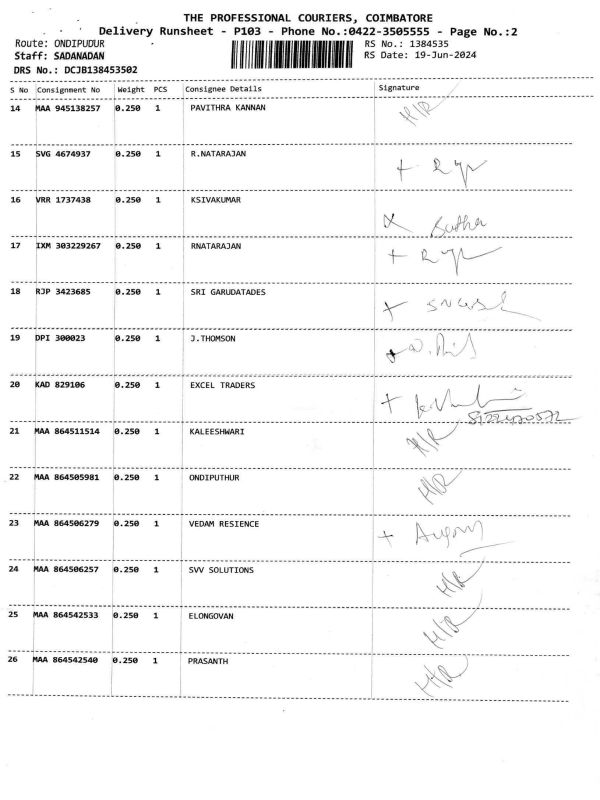 THE PROFESSIONAL COURIERS, COIMBATORE
Delivery Runsheet - P103 - Phone No.:0422-3505555 - Page No.:2
Route: ONDIPUDUR RS No.: 1384535
Staff: SADANADAN RS Date: 19-Jun-2024
DRS No.: DCJB138453502
S No Consignment No Weight PCS Consignee Details Signature
14 MAA 945138257 0.250 1 PAVITHRA KANNAN H/R
15 SVG 4674937 0.250 1 R.NATARAJAN
16 VRR 1737438 0.250 1 KSIVAKUMAR
17 IXM 303229267 0.250 1 RNATARAJAN
18 RJP 3423685 0.250 1 SRI GARUDATADES
19 DPI 300023 0.250 1 J.THOMSON
20 KAD 829106 0.250 1 EXCEL TRADERS
21 MAA 864511514 0.250 1 KALEESHWARI H/R
22 MAA 864505981 0.250 1 ONDIPUTHUR H/R
23 MAA 864506279 0.250 1 VEDAM RESIENCE
24 MAA 864506257 0.250 1 SVV SOLUTIONS H/R
25 MAA 864542533 0.250 1 ELONGOVAN H/R
26 MAA 864542540 0.250 1 PRASANTH H/R